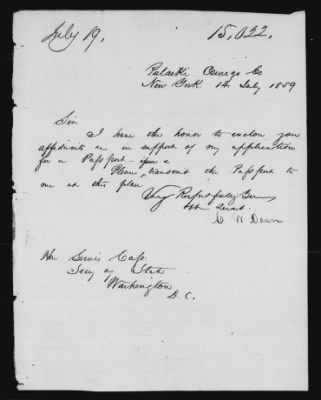 July 19.
15,022.
Pulaski Oswego Co
New York 14 July 1859
Sir
I have the honor to enclose you
affidavits in support of my application
for a Passport
Please transmit the Passport to
me at this place
Very Respectfully
Servt.
C N Dean
Hon Lewis Cass
Secy of State
Washington
D. C.